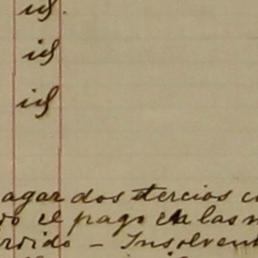 id.
id
id
agar dos tercios
el pago en las
Insolvent